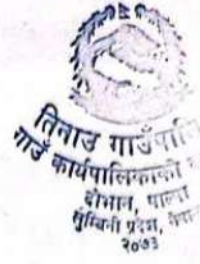 तिनाउ गाउँपालि
गाउँ कार्यपालिकाको
दोभान, पाल्पा
लुम्बिनी प्रदेश, नेपाल
२०७३